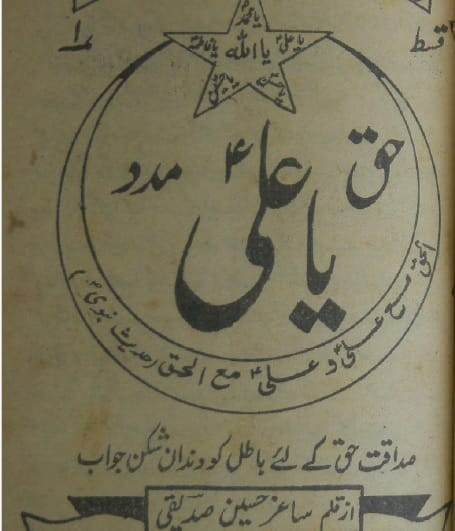 قسط نمبر ۱
یا محمدؐ
یا علیؑ یا اللہ یا فاطمہؑ
یا حسنؑ یا حسینؑ
حق
یا علیؑ مدد
الحق مع علیؑ و علیؑ مع الحق (حدیث نبویؐ)
صداقت حق کے لئے باطل کو دندان شکن جواب
از قلم ساغر حسین صدیقی